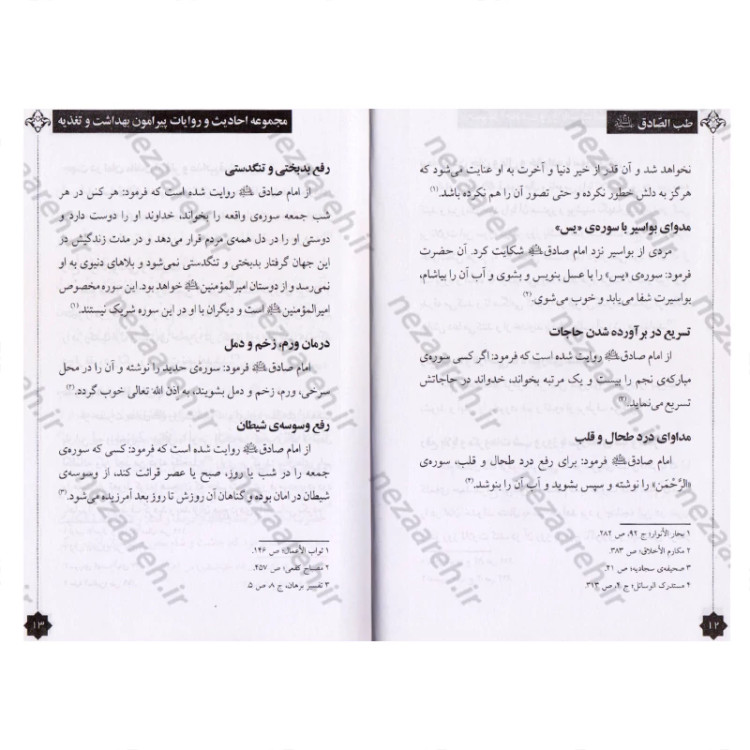 طب الصّادق ﷷ
نخواهد شد و آن قدر از خیر دنیا و آخرت به او عنایت می‌شود که
هرگز به دلش خطور نکرده و حتی تصور آن را هم نکرده باشد.(۱)
مدوای بواسیر با سوره‌ی «یس»
مردی از بواسیر نزد امام صادق شکایت کرد. آن حضرت
فرمود: سوره‌ی «یس» را با عسل بنویس و بشوی و آب آن را بیاشام،
بواسیرت شفا می‌یابد و خوب می‌شوی.(۲)
تسریع در برآورده شدن حاجات
از امام صادق روایت شده است که فرمود: اگر کسی سوره‌ی
مبارکه‌ی نجم را بیست و یک مرتبه بخواند، خدواند در حاجاتش
تسریع می‌نماید.(۳)
مداوای درد طحال و قلب
امام صادق فرمود: برای رفع درد طحال و قلب، سوره‌ی
«الرَّحْمَن» را نوشته و سپس بشوید و آب آن را بنوشد.(۴)
۱ بحار الأنوار؛ ج ۹۲، ص ۲۸۲.
۲ مکارم الأخلاق؛ ص ۳۸۳.
۳ صحیفه‌ی سجادیه؛ ص ۲۱.
۴ مستدرک الوسائل؛ ج ۴، ص ۳۱۳.
۱۲
مجموعه احادیث و روایات پیرامون بهداشت و تغذیه
رفع بدبختی و تنگدستی
از امام صادق روایت شده است که فرمود: هر کس در هر
شب جمعه سوره‌ی واقعه را بخواند، خداوند او را دوست دارد و
دوستی او را در دل همه‌ی مردم قرار می‌دهد و در مدت زندگیش در
این جهان گرفتار بدبختی و تنگدستی نمی‌شود و بلاهای دنیوی به او
نمی‌رسد و از دوستان امیرالمؤمنین خواهد بود. این سوره مخصوص
امیرالمؤمنین است و دیگران با او در این سوره شریک نیستند.(۱)
درمان ورم، زخم و دمل
امام صادق فرمود: سوره‌ی حدید را نوشته و آن را در محل
سرخی، ورم، زخم و دمل بشویند، به اذن الله تعالی خوب گردد.(۲)
رفع وسوسه‌ی شیطان
از امام صادق روایت شده است که فرمود: کسی که سوره‌ی
جمعه را در شب یا روز، صبح یا عصر قرائت کند، از وسوسه‌ی
شیطان در امان بوده و گناهان آن روزش تا روز بعد آمرزیده می‌شود.(۳)
۱ ثواب الأعمال؛ ص ۱۴۶.
۲ مصباح کفعمی؛ ص ۴۵۷.
۳ تفسیر برهان، ج ۸، ص ۵.
۱۳
nezaareh.ir
nezaareh.ir
nezaareh.ir
nezaareh.ir
nezaareh.ir
nezaareh.ir